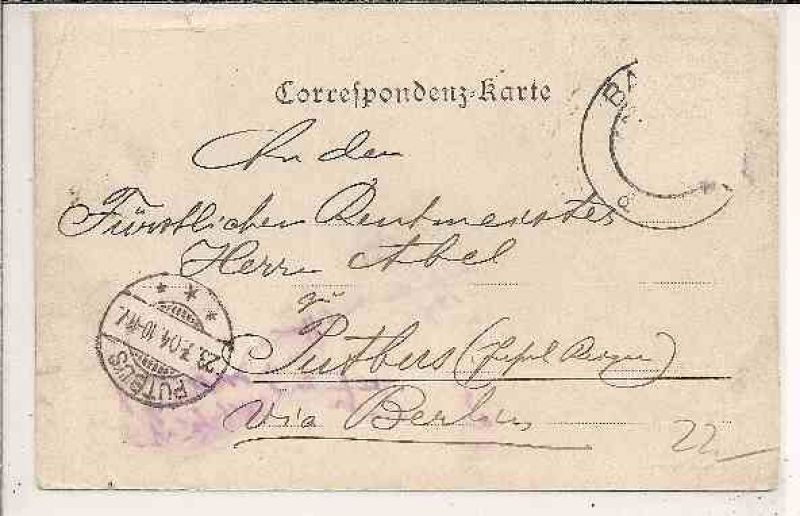 Correspondenz-Karte
BA
An den
Fürstlichen Rentmeister
Herrn Abel
zu
Putbus (Insel Rügen)
via Berlin
PUTBUS
23.7.04.10-11V.
22